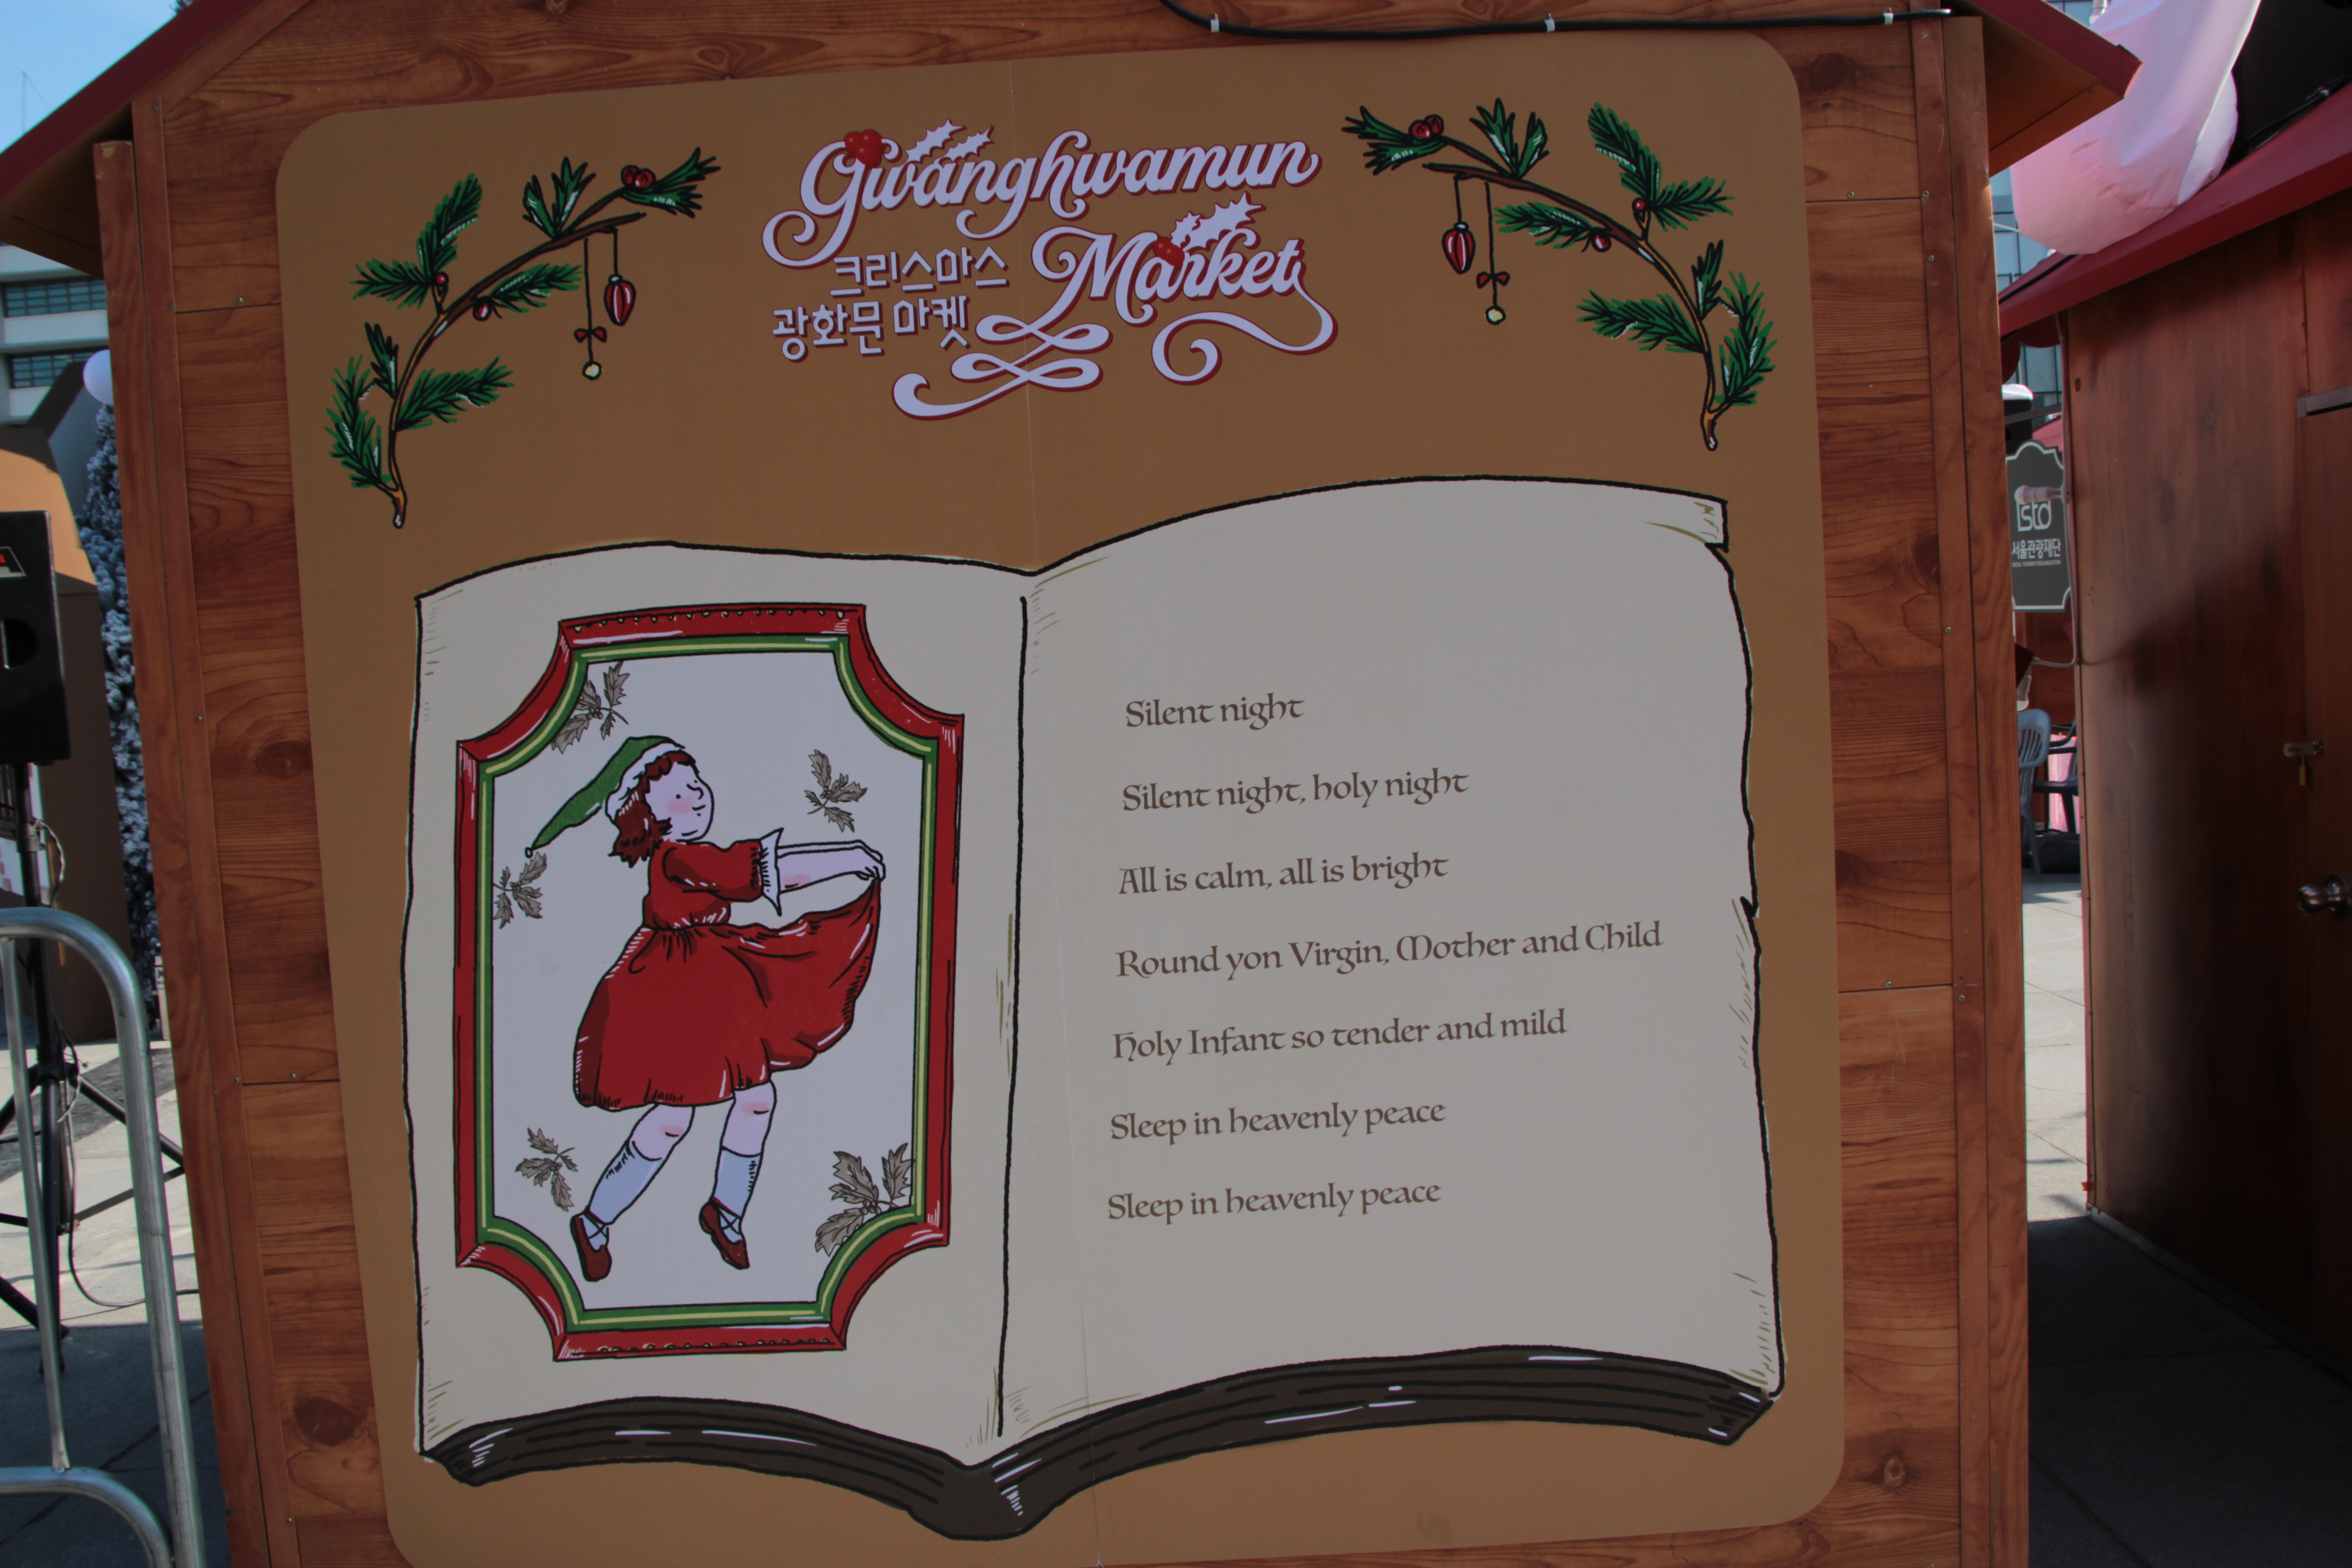 Gwanghwamun
Market
크리스마스
광화문 마켓
Silent night
Silent night, holy night
All is calm, all is bright
Round yon Virgin, Mother and Child
Holy Infant so tender and mild
Sleep in heavenly peace
Sleep in heavenly peace
sto
서울관광재단